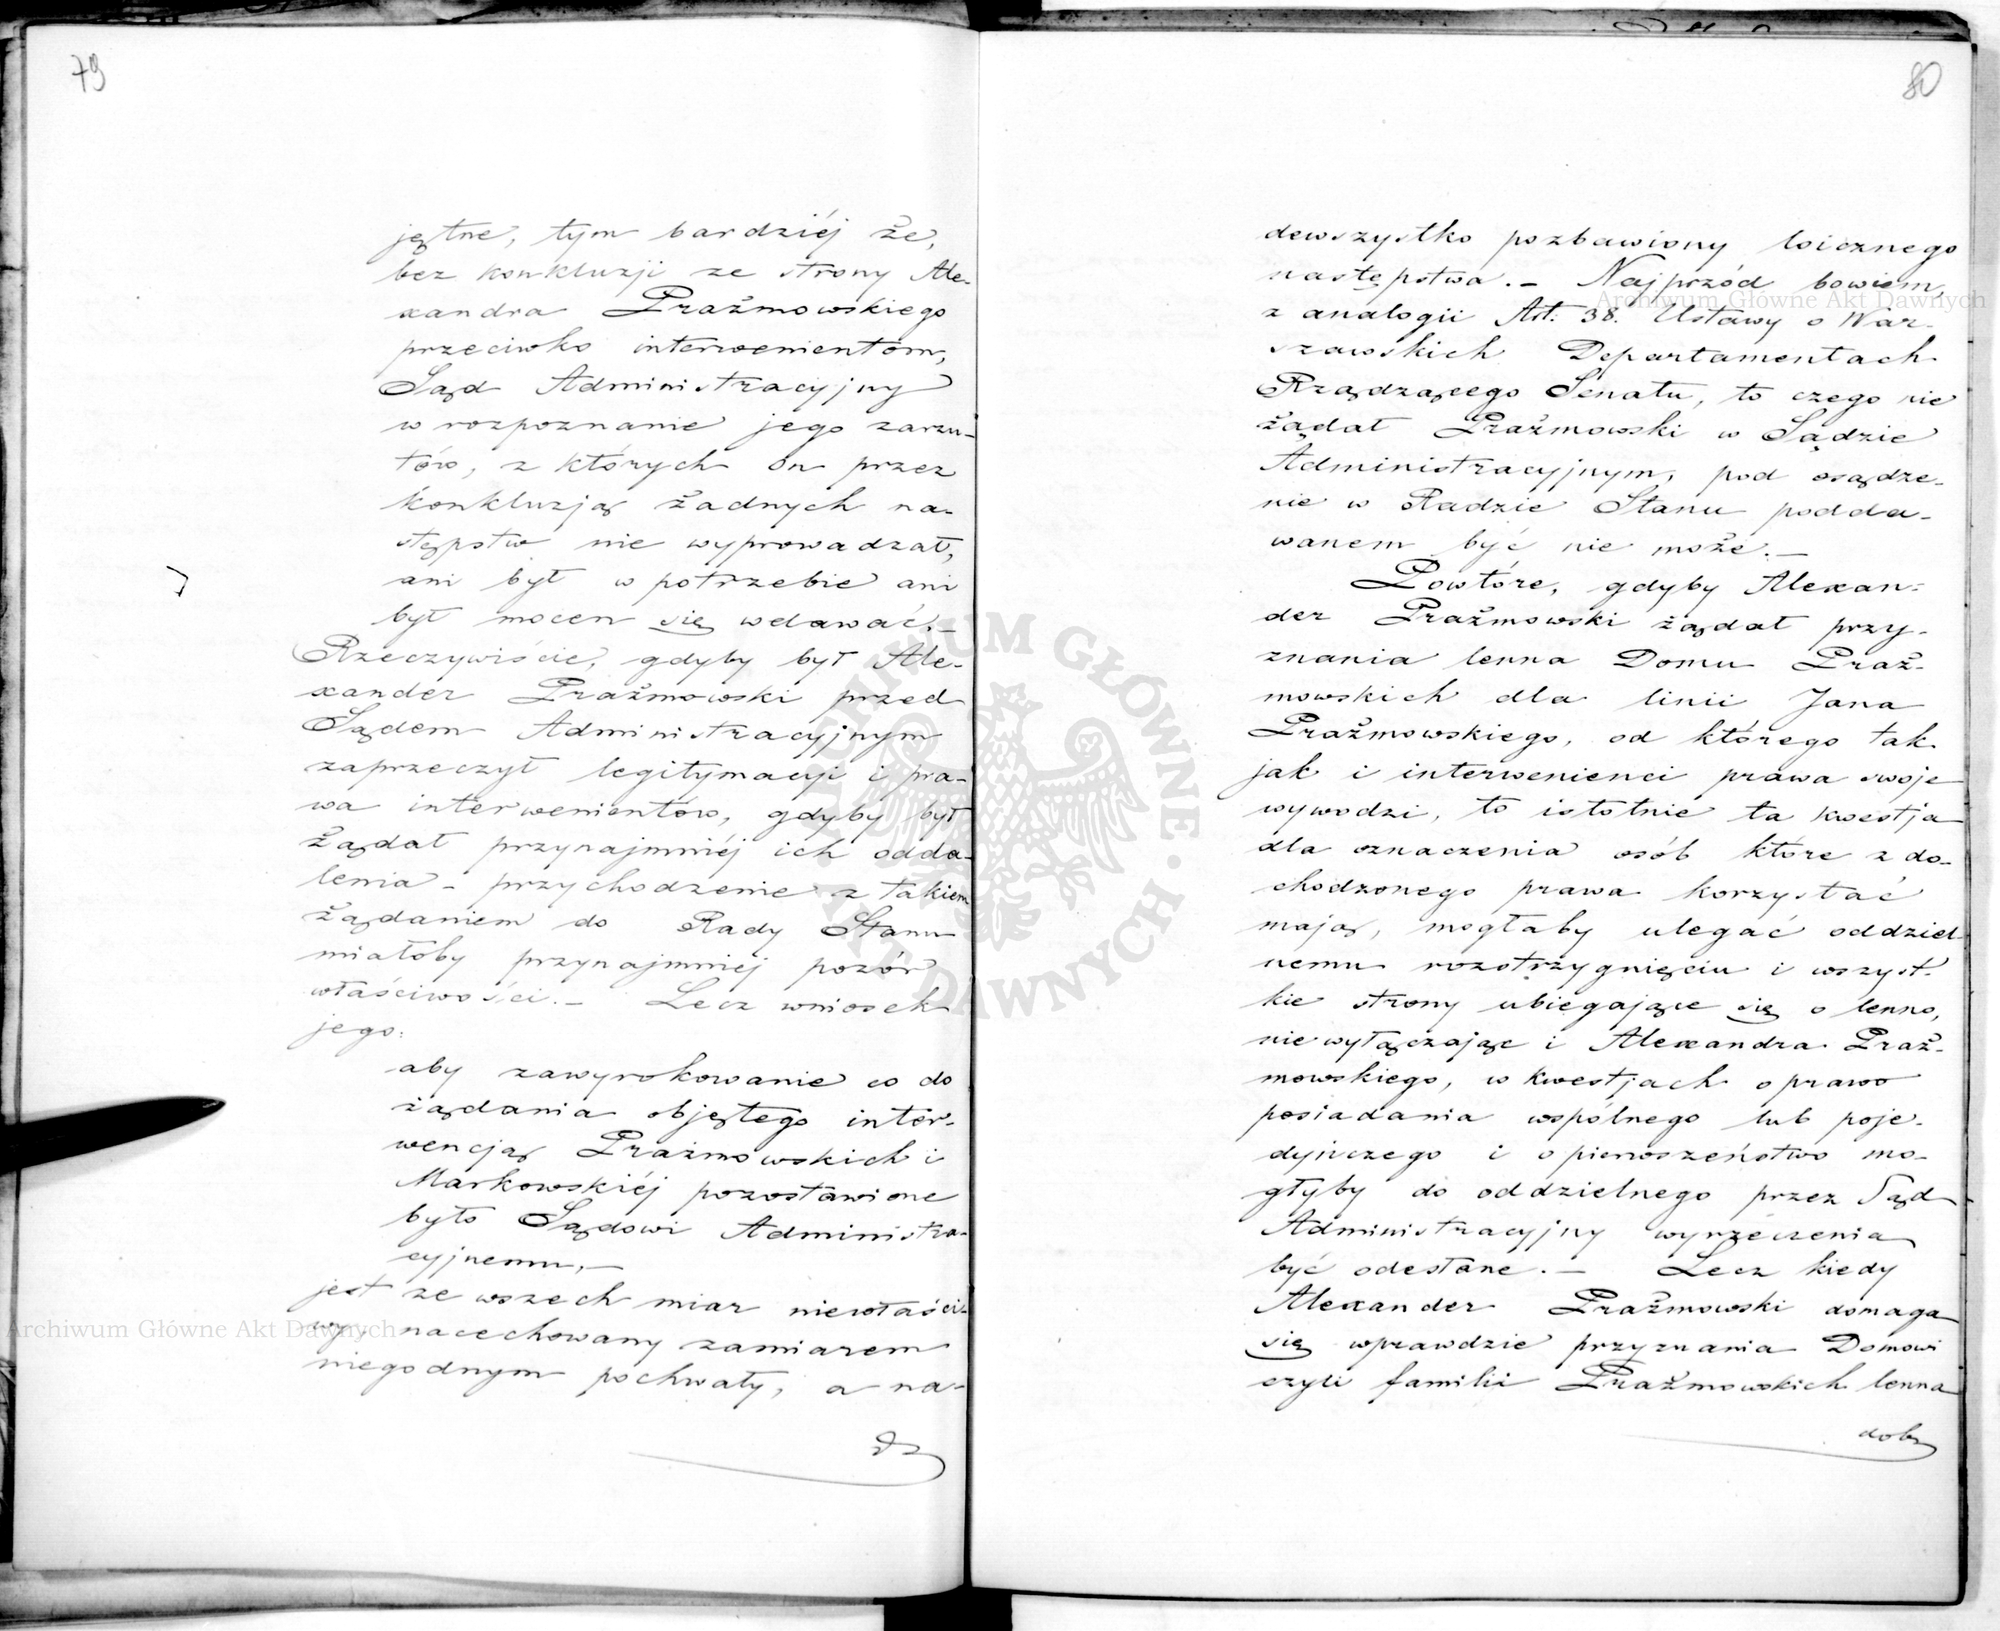 79
jętne, tym bardziéj że,
bez konkluzji ze strony Ale-
xandra Prażmowskiego
przeciwko interwenientom,
Sąd Administracyjny
w rozpoznanie jego zarzu-
tów, z których on przez
konkluzją żadnych na-
stępstw nie wyprowadzał,
ani był w potrzebie ani
był mocen się wdawać.—
Rzeczywiście, gdyby był Ale-
xander Prażmowski przed
Sądem Administracyjnym
zaprzeczył legitymacyi i pra-
wa interwenientów, gdyby był
żądał przynajmniéj ich odda-
lenia – przychodzenie z takiem
żądaniem do Rady Stanu
miałoby przynajmniej pozór
właściwości.— Lecz wniosek
jego:
aby zawyrokowanie co do
żądania objętego inter-
wencją Prażmowskich i
Markowskiéj pozostawione
było Sądowi Administra-
cyjnemu,—
jest ze wszech miar niewłaści-
wy, nacechowany zamiarem
niegodnym pochwały, a na-
dz
80
dewszystko pozbawiony loicznego
następstwa.— Najprzód bowiem,
z analogii Art: 38. Ustawy o War-
szawskich Departamentach
Rządzącego Senatu, to czego nie
żądał Prażmowski w Sądzie
Administracyjnym, pod osądze-
nie w Radzie Stanu podda-
wanem być nie może.—
Powtóre, gdyby Alexan-
der Prażmowski żądał przy-
znania lenna Domu Praż-
mowskich dla linii Jana
Prażmowskiego, od którego tak
jak i interwenienci prawa swoje
wywodzi, to istotnie ta kwestja
dla oznaczenia osób które z do-
chodzonego prawa korzystać
mają, mogłaby ulegać oddziel-
nemu rozstrzygnięciu i wszyst-
kie strony ubiegające się o lenno,
niewyłączając i Alexandra Praż-
mowskiego, w kwestjach o prawo
posiadania wspólnego lub poje-
dyńczego i o pierwszeństwo mo-
głyby do oddzielnego przez Sąd
Administracyjny wyrzeczenia
być odesłane.— Lecz kiedy
Alexander Prażmowski domaga
się wprawdzie przyznania Domowi
czyli familii Prażmowskich lenna
dobr
Archiwum Główne Akt Dawnych
Archiwum Główne Akt Dawnych
ARCHIWUM GŁÓWNE · AKT DAWNYCH ·